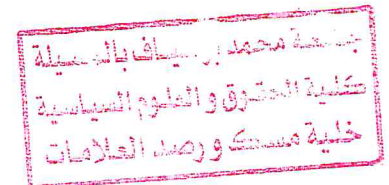 جامعة محمد بوضياف بالمسيلة
كلية الحقوق و العلوم السياسية
خلية مسك و رصد العلامات